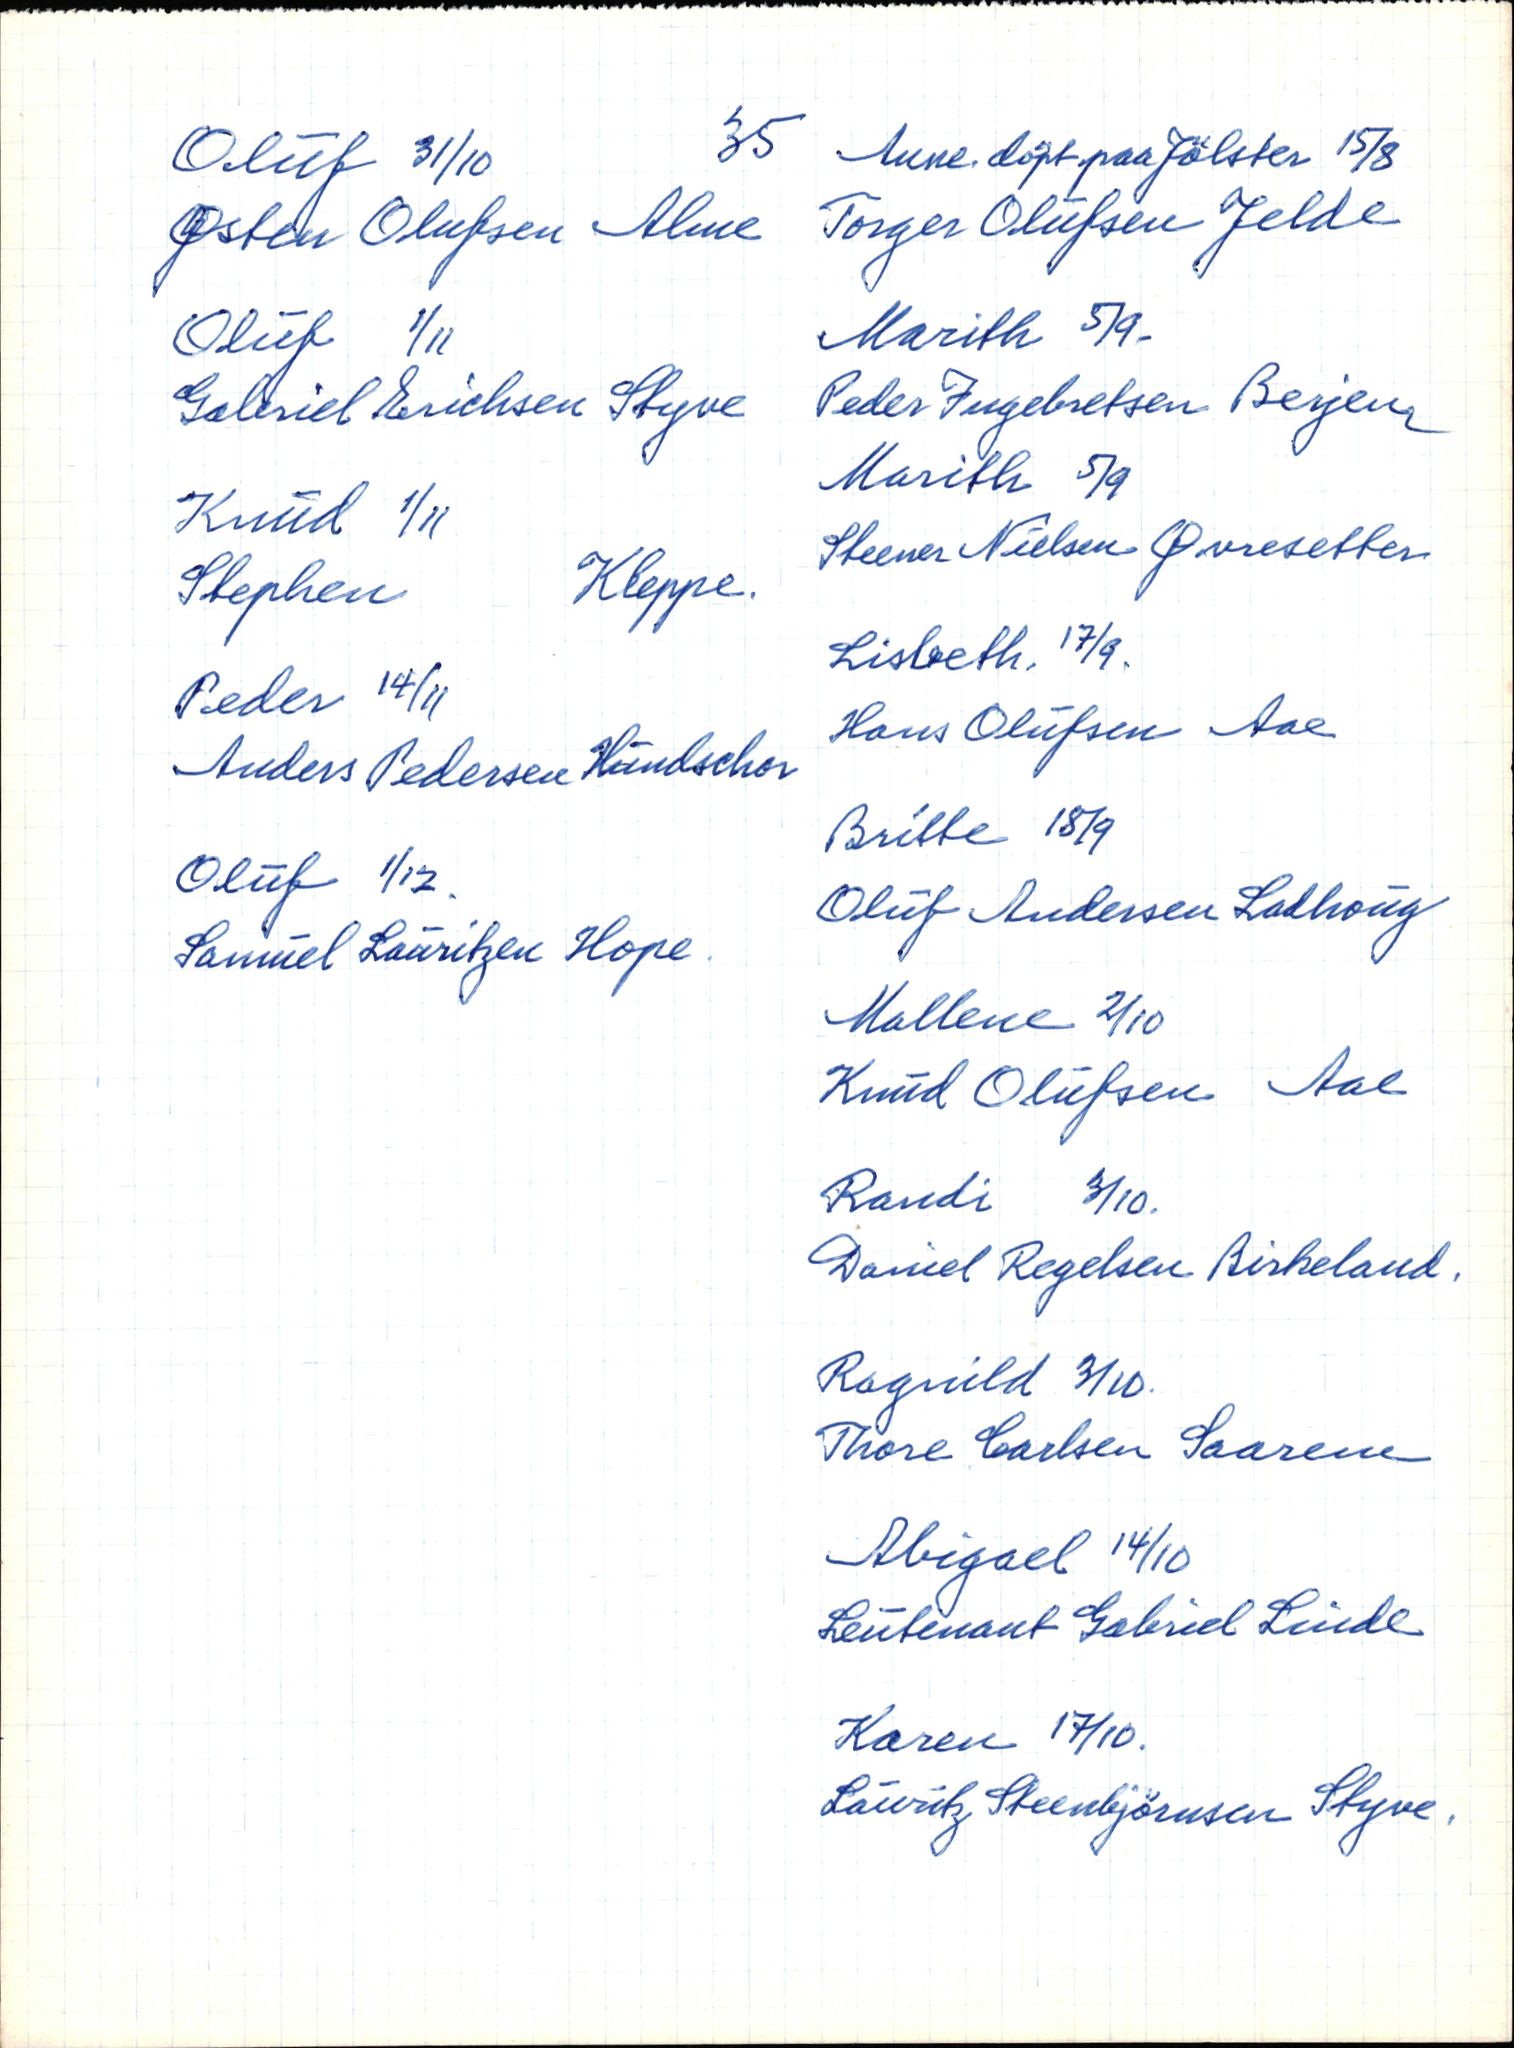 35
Oluf 31/10
Østen Olufsen Alme
Oluf 1/11
Gabriel Erichsen Styve
Knud 1/11
Stephen Kleppe.
Peder 14/11
Anders Pedersen Hundschor
Oluf 1/12.
Samuel Lauritzen Hope.
Anne. döpt paa Jölster 15/8
Torger Olufsen Jelde
Marith 5/9.
Peder Ingebretsen Berjen
Marith 5/9
Steener Nielsen Øvresetter
Lisbeth. 17/9.
Hans Olufsen Aae
Britte 18/9
Oluf Andersen Ladhoug
Mallene 2/10
Knud Olufsen Aae
Randi 3/10.
Daniel Regelsen Birkeland.
Ragnild 3/10.
Thore Carlsen Saarem
Abigael 14/10
Leutenant Gabriel Linde
Karen 17/10.
Lauritz Steenbjörnsen Styve.